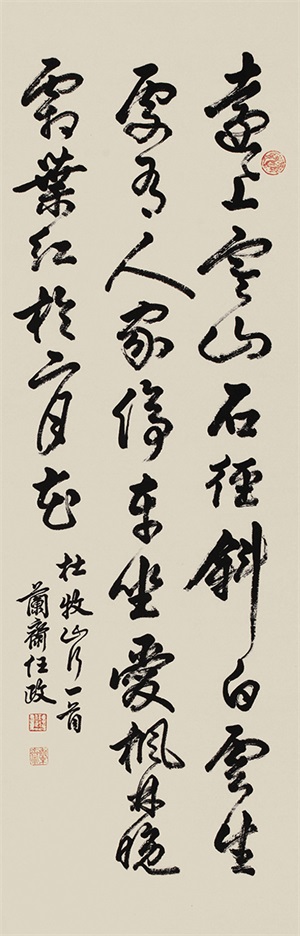 遠上寒山石徑斜白雲生
處有人家停車坐愛楓林晚
霜葉紅於二月花
杜牧山行一首
蘭齋任政